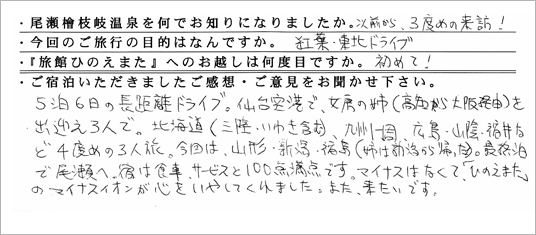 ・尾瀬檜枝岐温泉を何でお知りになりましたか。以前から、3度めの来訪！
・今回のご旅行の目的はなんですか。 紅葉・東北ドライブ
・『旅館ひのえまた』へのお越しは何度目ですか。 初めて！
・ご宿泊いただきましたご感想・ご意見をお聞かせ下さい。
5泊6日の長距離ドライブ。仙台空港で、女房の姉(高知から大阪経由)を
出迎え3人で。北海道(三陸・いわき含む)、九州一周、広島・山陰・福井な
ど4度めの3人旅。今回は、山形・新潟・福島(姉は前泊から帰宅)。最終泊
で尾瀬へ。宿は食事、サービスと100点満点です。マイナスはなくて「ひのえまた」
のマイナスイオンが心をいやしてくれました。また、来たいです。